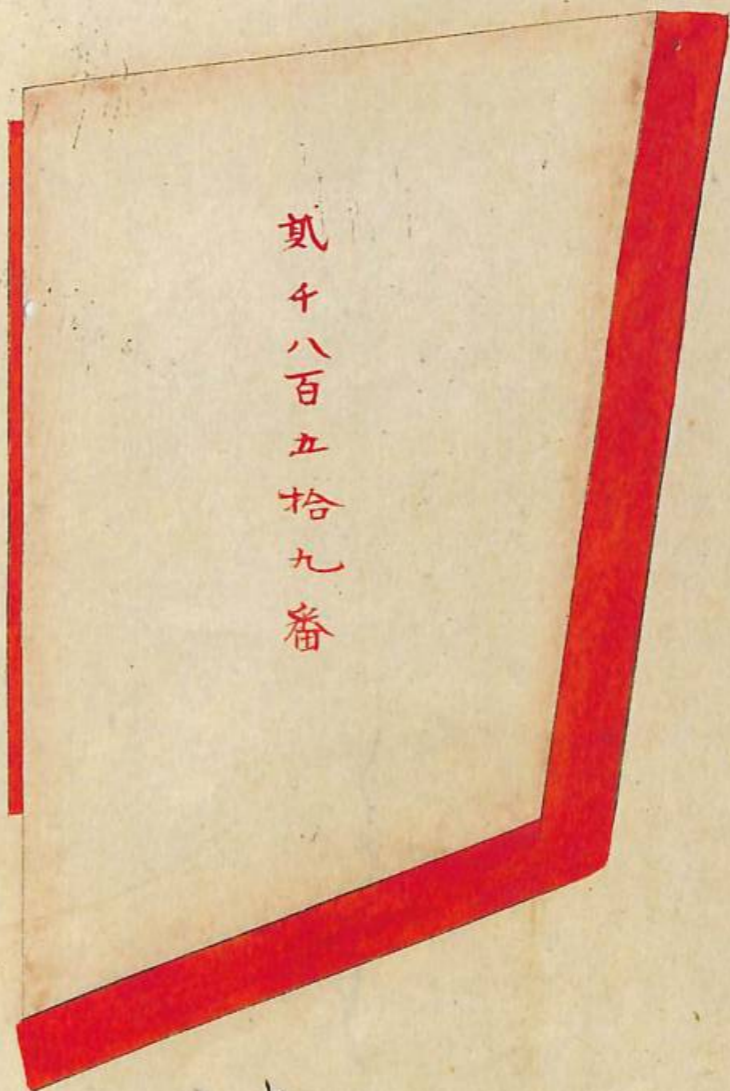 貳千八百五拾九番